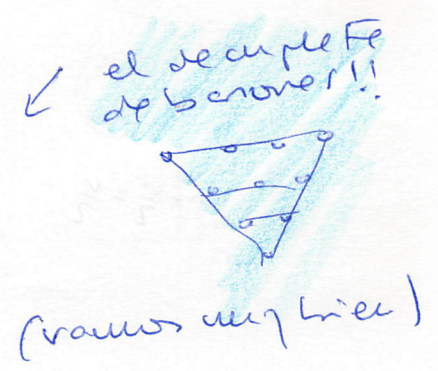 el decuplete
de bariones!!
(vamos muy bien)